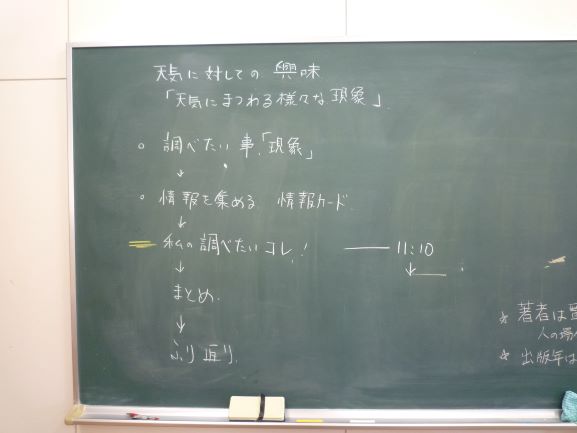 天気に対しての興味
「天気にまつわる様々な現象」
○ 調べたい事「現象」
↓
○ 情報を集める 情報カード
↓
私の調べたいコレ! ― 11:10
↓ ↓
まとめ
↓
ふり返り
☆ 著者は
人の場
☆ 出版年は